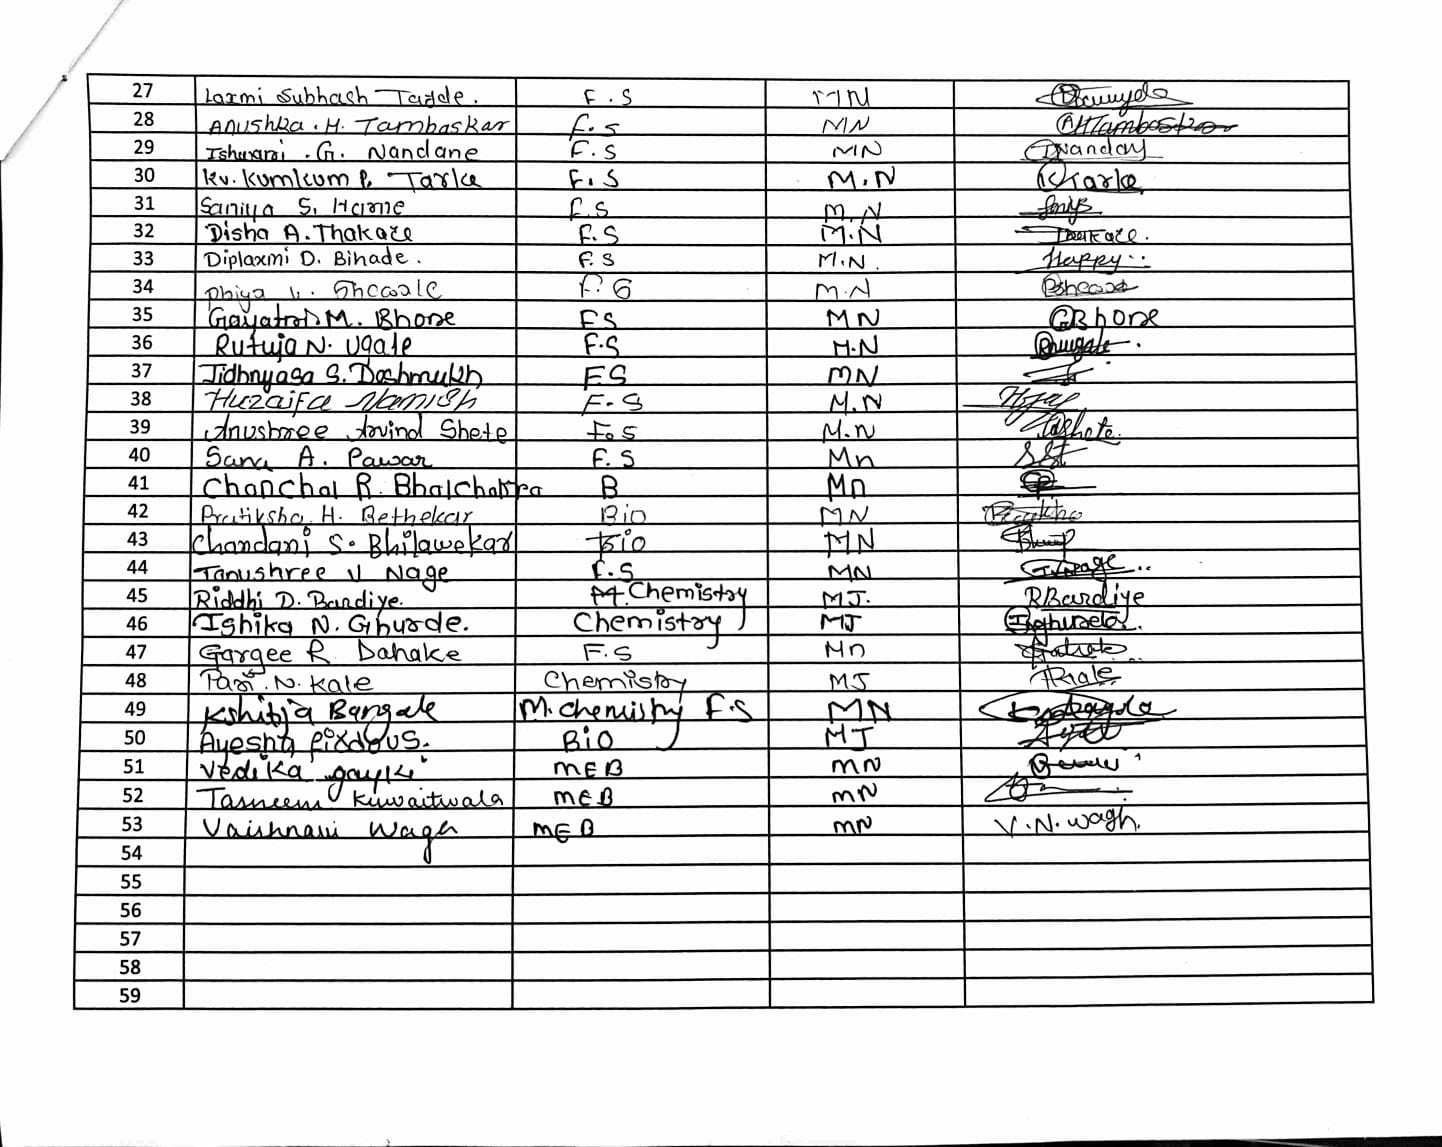 27 Laxmi Subhash Tayde. F.S MN
28 Anushka. H. Tambaskar F.S MN AHTambaskar
29 Ishwari . G. Nandane F.S MN
30 Ku. Kumkum P. Tarke F.S M.N KTarke
31 Saniya S. Harne F.S M.N
32 Disha A. Thakare F.S M.N Thakare.
33 Diplaxmi D. Binade. F.S M.N. Happy
34 F.S M.N
35 Gayatri M. Bhore FS MN GBhore
36 Rutuja N. Ugale F.S M.N
37 Jidhnyasa S. Deshmukh FS MN
38 Huzaifa F.S M.N
39 Anushree Arvind Shete F.S M.N
40 Sana A. Pawar F.S Mn
41 Chanchal R. Bhalchakra B Mn
42 Pratiksha H. Bethekar Bio MN
43 Chandani S. Bhilawekar Bio MN
44 Tanushree V Nage F.S MN
45 Riddhi D. Bardiye. Chemistry MJ. RBardiye
46 Ishika N. Ghurde. Chemistry MJ
47 Gargee R. Dahake F.S Mn
48 Pari. N. Kale Chemistry MJ
49 Kshitija Bangale M. chemistry F.S MN
50 Ayesha firdous. BiO MJ
51 Vedika gayki MEB MN
52 Tasneem Kuwaitwala MEB MN
53 Vaishnavi Wagh MEB MN V.N.wagh.
54
55
56
57
58
59